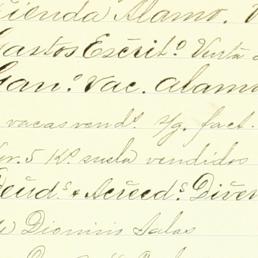 Tienda Alamo.
Gastos Escrit.o Venta
Gan.o Vac. Alamo
vacas vend.s s/g. fact.
5 K.s suela vendidos
Deud.s & Acreed.s Diver
Dionisis Salas